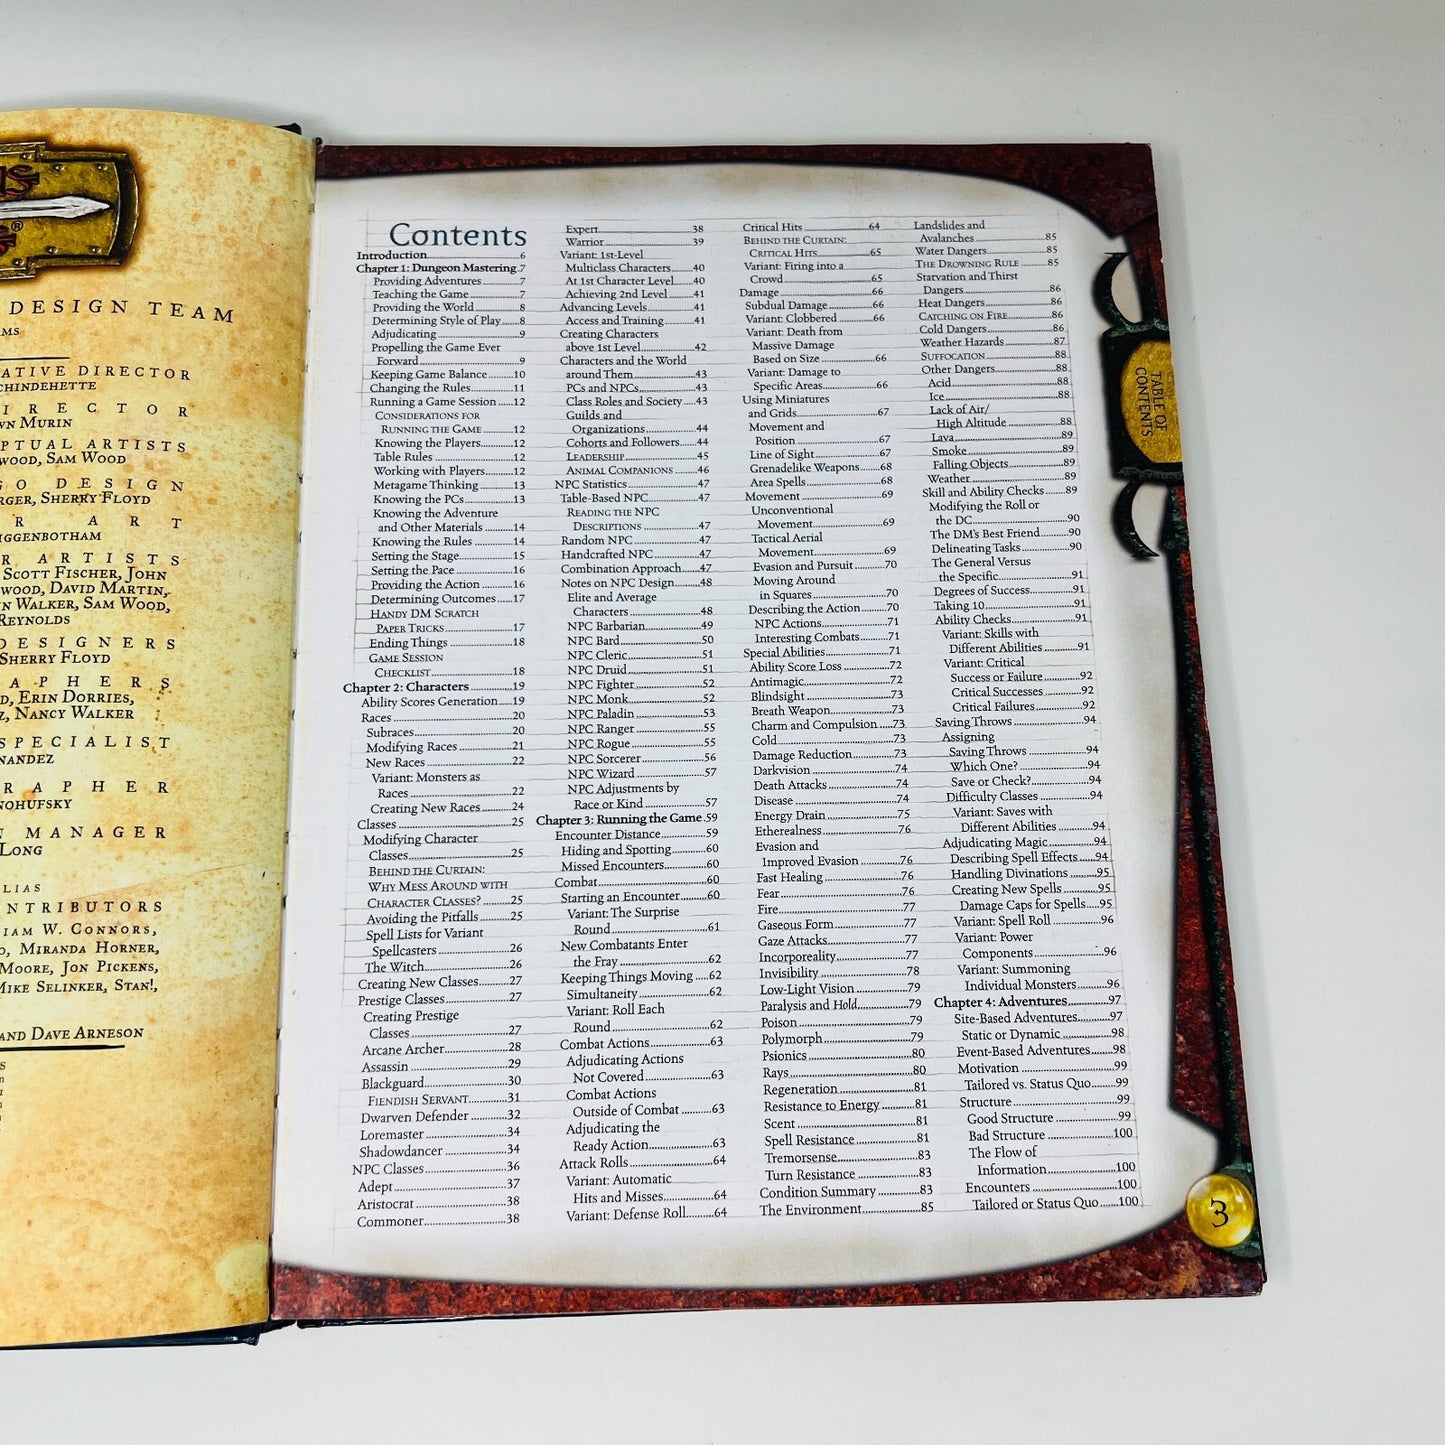 DESIGN TEAM
DIRECTOR
Murin
ARTISTS
wood, Sam Wood
DESIGN
Sherry Floyd
ART
ARTISTS
Scott Fischer, John
wood, David Martin,
Walker, Sam Wood,
Reynolds
DESIGNERS
Sherry Floyd
Erin Dorries,
Nancy Walker
SPECIALIST
MANAGER
Long
W. Connors,
Miranda Horner,
Moore, Jon Pickens,
Mike Selinker, Stan!,
and Dave Arneson
Contents
Introduction 6
Chapter 1: Dungeon Mastering 7
Providing Adventures 7
Teaching the Game 7
Providing the World 8
Determining Style of Play 8
Adjudicating 9
Propelling the Game Ever
Forward 9
Keeping Game Balance 10
Changing the Rules 11
Running a Game Session 12
Considerations for
Running the Game 12
Knowing the Players 12
Table Rules 12
Working with Players 12
Metagame Thinking 13
Knowing the PCs 13
Knowing the Adventure
and Other Materials 14
Knowing the Rules 14
Setting the Stage 15
Setting the Pace 16
Providing the Action 16
Determining Outcomes 17
Handy DM Scratch
Paper Tricks 17
Ending Things 18
Game Session
Checklist 18
Chapter 2: Characters 19
Ability Scores Generation 19
Races 20
Subraces 20
Modifying Races 21
New Races 22
Variant: Monsters as
Races 22
Creating New Races 24
Classes 25
Modifying Character
Classes 25
Behind the Curtain:
Why Mess Around with
Character Classes? 25
Avoiding the Pitfalls 25
Spell Lists for Variant
Spellcasters 26
The Witch 26
Creating New Classes 27
Prestige Classes 27
Creating Prestige
Classes 27
Arcane Archer 28
Assassin 29
Blackguard 30
Fiendish Servant 31
Dwarven Defender 32
Loremaster 34
Shadowdancer 34
NPC Classes 36
Adept 37
Aristocrat 38
Commoner 38
Expert 38
Warrior 39
Variant: 1st-Level
Multiclass Characters 40
At 1st Character Level 40
Achieving 2nd Level 41
Advancing Levels 41
Access and Training 41
Creating Characters
above 1st Level 42
Characters and the World
around Them 43
PCs and NPCs 43
Class Roles and Society 43
Guilds and
Organizations 44
Cohorts and Followers 44
Leadership 45
Animal Companions 46
NPC Statistics 47
Table-Based NPC 47
Reading the NPC
Descriptions 47
Random NPC 47
Handcrafted NPC 47
Combination Approach 47
Notes on NPC Design 48
Elite and Average
Characters 48
NPC Barbarian 49
NPC Bard 50
NPC Cleric 51
NPC Druid 51
NPC Fighter 52
NPC Monk 52
NPC Paladin 53
NPC Ranger 55
NPC Rogue 55
NPC Sorcerer 56
NPC Wizard 57
NPC Adjustments by
Race or Kind 57
Chapter 3: Running the Game 59
Encounter Distance 59
Hiding and Spotting 60
Missed Encounters 60
Combat 60
Starting an Encounter 60
Variant: The Surprise
Round 61
New Combatants Enter
the Fray 62
Keeping Things Moving 62
Simultaneity 62
Variant: Roll Each
Round 62
Combat Actions 63
Adjudicating Actions
Not Covered 63
Combat Actions
Outside of Combat 63
Adjudicating the
Ready Action 63
Attack Rolls 64
Variant: Automatic
Hits and Misses 64
Variant: Defense Roll 64
Critical Hits 64
Behind the Curtain:
Critical Hits 65
Variant: Firing into a
Crowd 65
Damage 66
Subdual Damage 66
Variant: Clobbered 66
Variant: Death from
Massive Damage
Based on Size 66
Variant: Damage to
Specific Areas 66
Using Miniatures
and Grids 67
Movement and
Position 67
Line of Sight 67
Grenadelike Weapons 68
Area Spells 68
Movement 69
Unconventional
Movement 69
Tactical Aerial
Movement 69
Evasion and Pursuit 70
Moving Around
in Squares 70
Describing the Action 70
NPC Actions 71
Interesting Combats 71
Special Abilities 71
Ability Score Loss 72
Antimagic 72
Blindsight 73
Breath Weapon 73
Charm and Compulsion 73
Cold 73
Damage Reduction 73
Darkvision 74
Death Attacks 74
Disease 74
Energy Drain 75
Etherealness 76
Evasion and
Improved Evasion 76
Fast Healing 76
Fear 76
Fire 77
Gaseous Form 77
Gaze Attacks 77
Incorporeality 77
Invisibility 78
Low-Light Vision 79
Paralysis and Hold 79
Poison 79
Polymorph 79
Psionics 80
Rays 80
Regeneration 81
Resistance to Energy 81
Scent 81
Spell Resistance 81
Tremorsense 83
Turn Resistance 83
Condition Summary 83
The Environment 85
Landslides and
Avalanches 85
Water Dangers 85
The Drowning Rule 85
Starvation and Thirst
Dangers 86
Heat Dangers 86
Catching on Fire 86
Cold Dangers 86
Weather Hazards 87
Suffocation 88
Other Dangers 88
Acid 88
Ice 88
Lack of Air/
High Altitude 88
Lava 89
Smoke 89
Falling Objects 89
Weather 89
Skill and Ability Checks 89
Modifying the Roll or
the DC 90
The DM's Best Friend 90
Delineating Tasks 90
The General Versus
the Specific 91
Degrees of Success 91
Taking 10 91
Ability Checks 91
Variant: Skills with
Different Abilities 91
Variant: Critical
Success or Failure 92
Critical Successes 92
Critical Failures 92
Saving Throws 94
Assigning
Saving Throws 94
Which One? 94
Save or Check? 94
Difficulty Classes 94
Variant: Saves with
Different Abilities 94
Adjudicating Magic 94
Describing Spell Effects 94
Handling Divinations 95
Creating New Spells 95
Damage Caps for Spells 95
Variant: Spell Roll 96
Variant: Power
Components 96
Variant: Summoning
Individual Monsters 96
Chapter 4: Adventures 97
Site-Based Adventures 97
Static or Dynamic 98
Event-Based Adventures 98
Motivation 99
Tailored vs. Status Quo 99
Structure 99
Good Structure 99
Bad Structure 100
The Flow of
Information 100
Encounters 100
Tailored or Status Quo 100
TABLE OF
CONTENTS
3